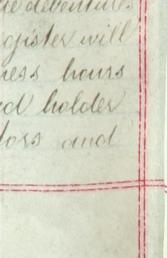 debentures
register will
ness hours
holder
loss and